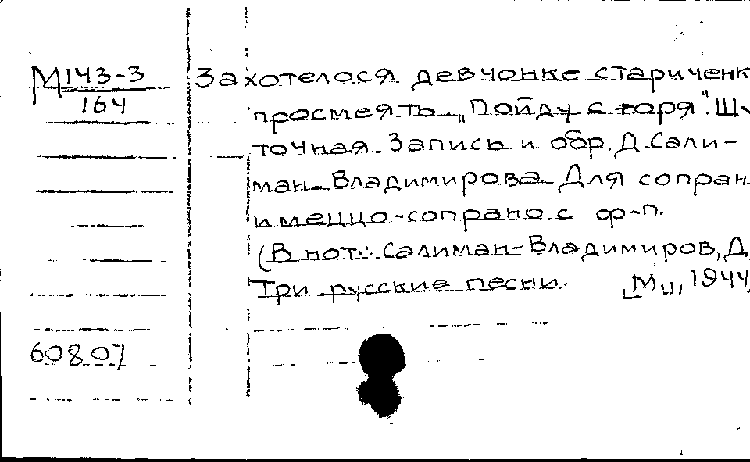 М143-3
164
Захотелося девчонке стариченк
просмеять „Пойду с горя". Шу
точная. Запись и обр. Д. Сали-
ман-Владимирова. Для сопран
и меццо-сопрано с ф-п.
(В нот.: Салиман-Владимиров, Д.
Три русские песни. М., 1944
60807